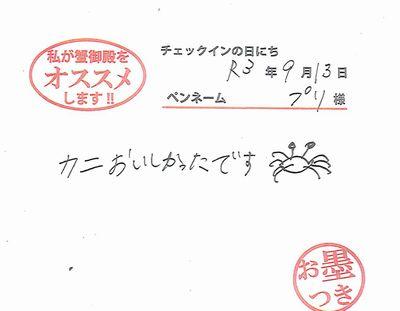 私が蟹御殿を
オススメ
します!!
チェックインの日にち
R3 年 9 月 13 日
ペンネーム プリ 様
カニおいしかったです
お墨
つき